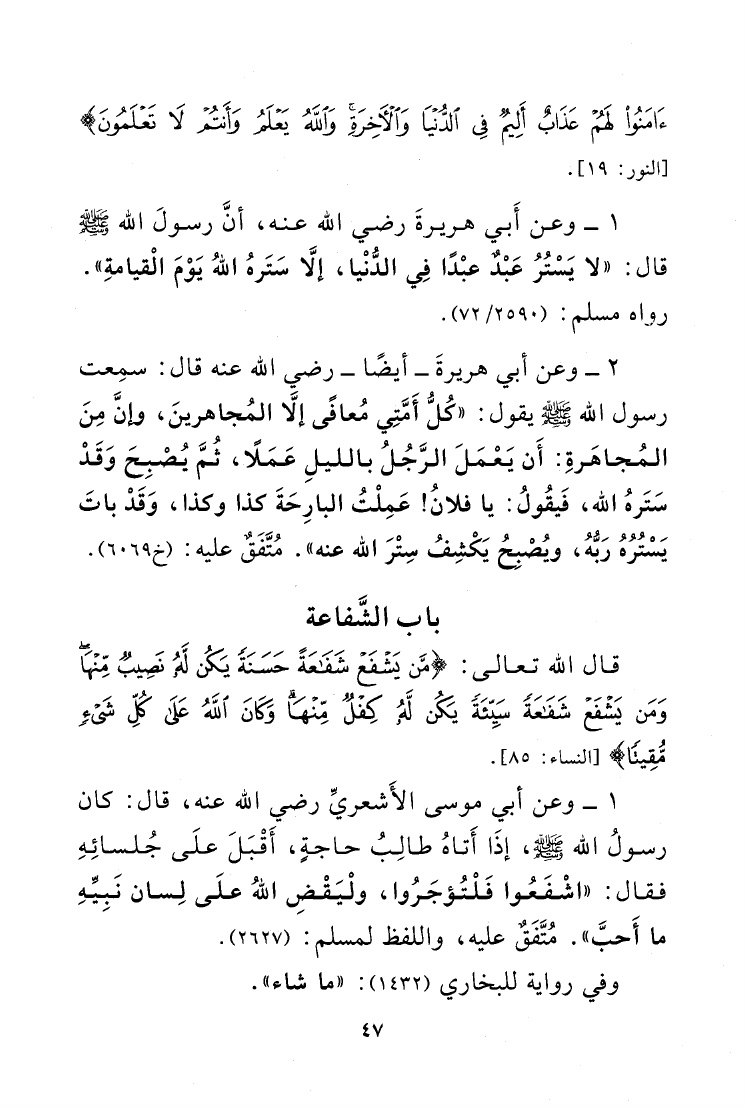 ءَامَنُوا۟ لَهُمْ عَذَابٌ أَلِيمٌ فِى ٱلدُّنْيَا وَٱلْأَخِرَةِ ۚ وَٱللَّهُ يَعْلَمُ وَأَنتُمْ لَا تَعْلَمُونَ﴾
[النور: ١٩].
١ ـ وعن أَبي هريرةَ رضي الله عنه، أنَّ رسولَ الله ﷺ
قال: «لا يَسْتُرُ عَبْدٌ عبْدًا فِي الدُّنْيا، إلَّا سَتَرهُ اللهُ يَوْمَ الْقيامةِ».
رواه مسلم: (٧٢/٢٥٩٠).
٢ ـ وعن أبي هريرةَ ـ أيضًا ـ رضي الله عنه قال: سمِعت
رسول الله ﷺ يقول: «كُلُّ أمَّتِي مُعافًى إلَّا المُجاهرينَ، وإنَّ مِنَ
المُجاهَرةِ: أن يَعْمَلَ الرَّجُلُ بالليلِ عَمَلًا، ثُمَّ يُصْبِحَ وَقَدْ
سَتَرهُ الله، فَيقُولُ: يا فلانُ! عَمِلْتُ البارِحَةَ كذا وكذا، وَقَدْ باتَ
يَسْتُرُهُ رَبُّهُ، ويُصْبِحُ يَكْشِفُ سِتْرَ الله عنه». مُتَّفَقٌ عليه: (خ٦٠٦٩).
باب الشَّفاعة
قال الله تعالى: ﴿مَّن يَشْفَعْ شَفَٰعَةً حَسَنَةً يَكُن لَّهُۥ نَصِيبٌ مِّنْهَا ۖ
وَمَن يَشْفَعْ شَفَٰعَةً سَيِّئَةً يَكُن لَّهُۥ كِفْلٌ مِّنْهَا ۗ وَكَانَ ٱللَّهُ عَلَىٰ كُلِّ شَىْءٍ
مُّقِيتًا﴾ [النساء: ٨٥].
١ ـ وعن أبي موسى الأَشعريِّ رضي الله عنه، قال: كان
رسولُ الله ﷺ، إذَا أَتاهُ طالِبُ حاجةٍ، أَقْبَلَ علَى جُلسائِهِ
فقال: «اشْفَعُوا فَلْتُؤجَرُوا، ولْيَقْضِ اللهُ على لِسان نَبِيِّهِ
ما أَحبَّ». مُتَّفَقٌ عليه، واللفظ لمسلم: (٢٦٢٧).
وفي رواية للبخاري (١٤٣٢): «ما شاء».
٤٧